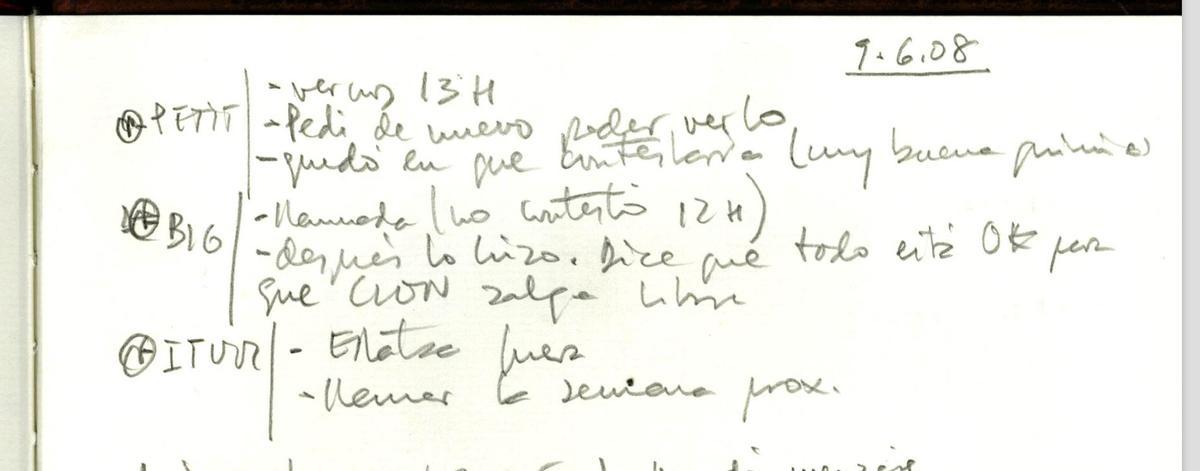 9.6.08
PETIT - vernos 13H
- Pedi de nuevo poder verlo
- quedó en que contestaría (muy buena
BIG - llamada (no contestó 12H)
- después lo hizo. Dice que todo está OK para
que CLON salga libre
ITURR - fuera
- llamar la semana prox.